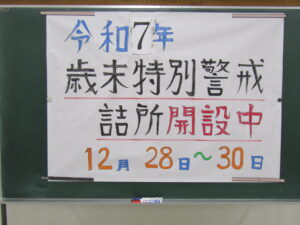 令和7年
歳末特別警戒
詰所開設中
12月28日～30日